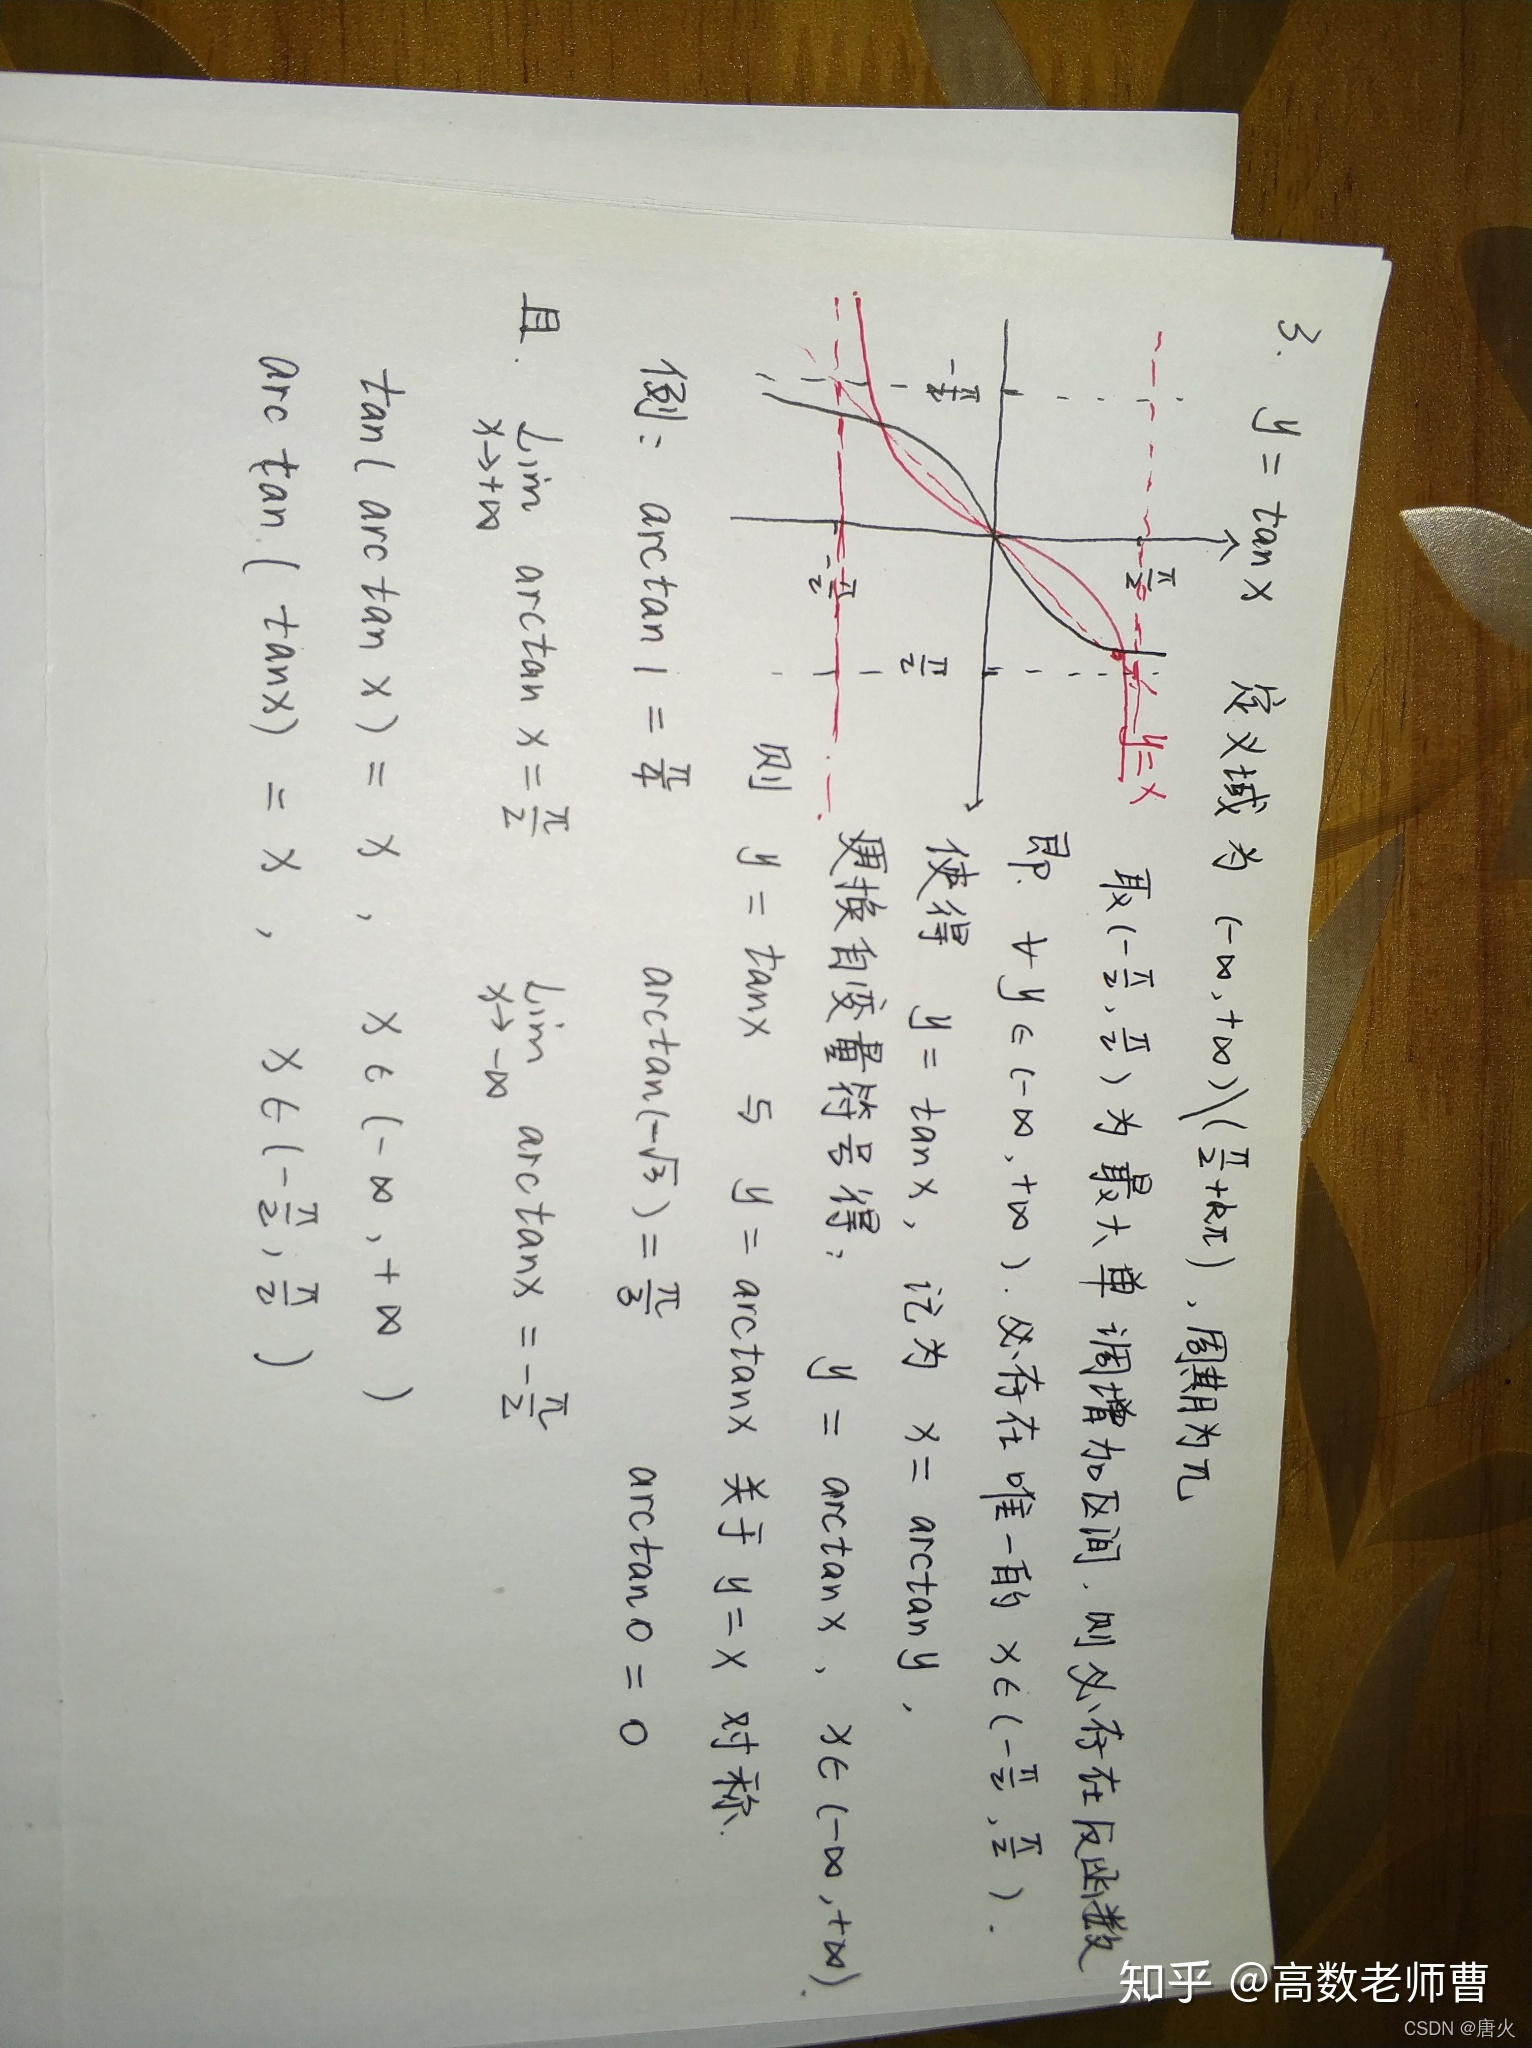 3. y = tanx 定义域为 (-∞,+∞)\(π/2+kπ), 周期为π
取(-π/2, π/2)为最大单调增加区间. 则必存在反函数
即. ∀y∈(-∞,+∞). 必存在唯一的 x∈(-π/2, π/2).
使得 y = tanx, 记为 x = arctany,
更换自变量符号得, y = arctanx, x∈(-∞,+∞).
则 y = tanx 与 y = arctanx 关于 y=x 对称.
y=x
π/2
-π/2
π/2
-π/2
例: arctan1 = π/4 arctan(-√3) = π/3 arctan0 = 0
且. Lim x→+∞ arctanx = π/2 Lim x→-∞ arctanx = -π/2
tan(arctanx) = x, x∈(-∞,+∞)
arctan(tanx) = x, x∈(-π/2, π/2)
知乎 @高数老师曹
CSDN @唐火